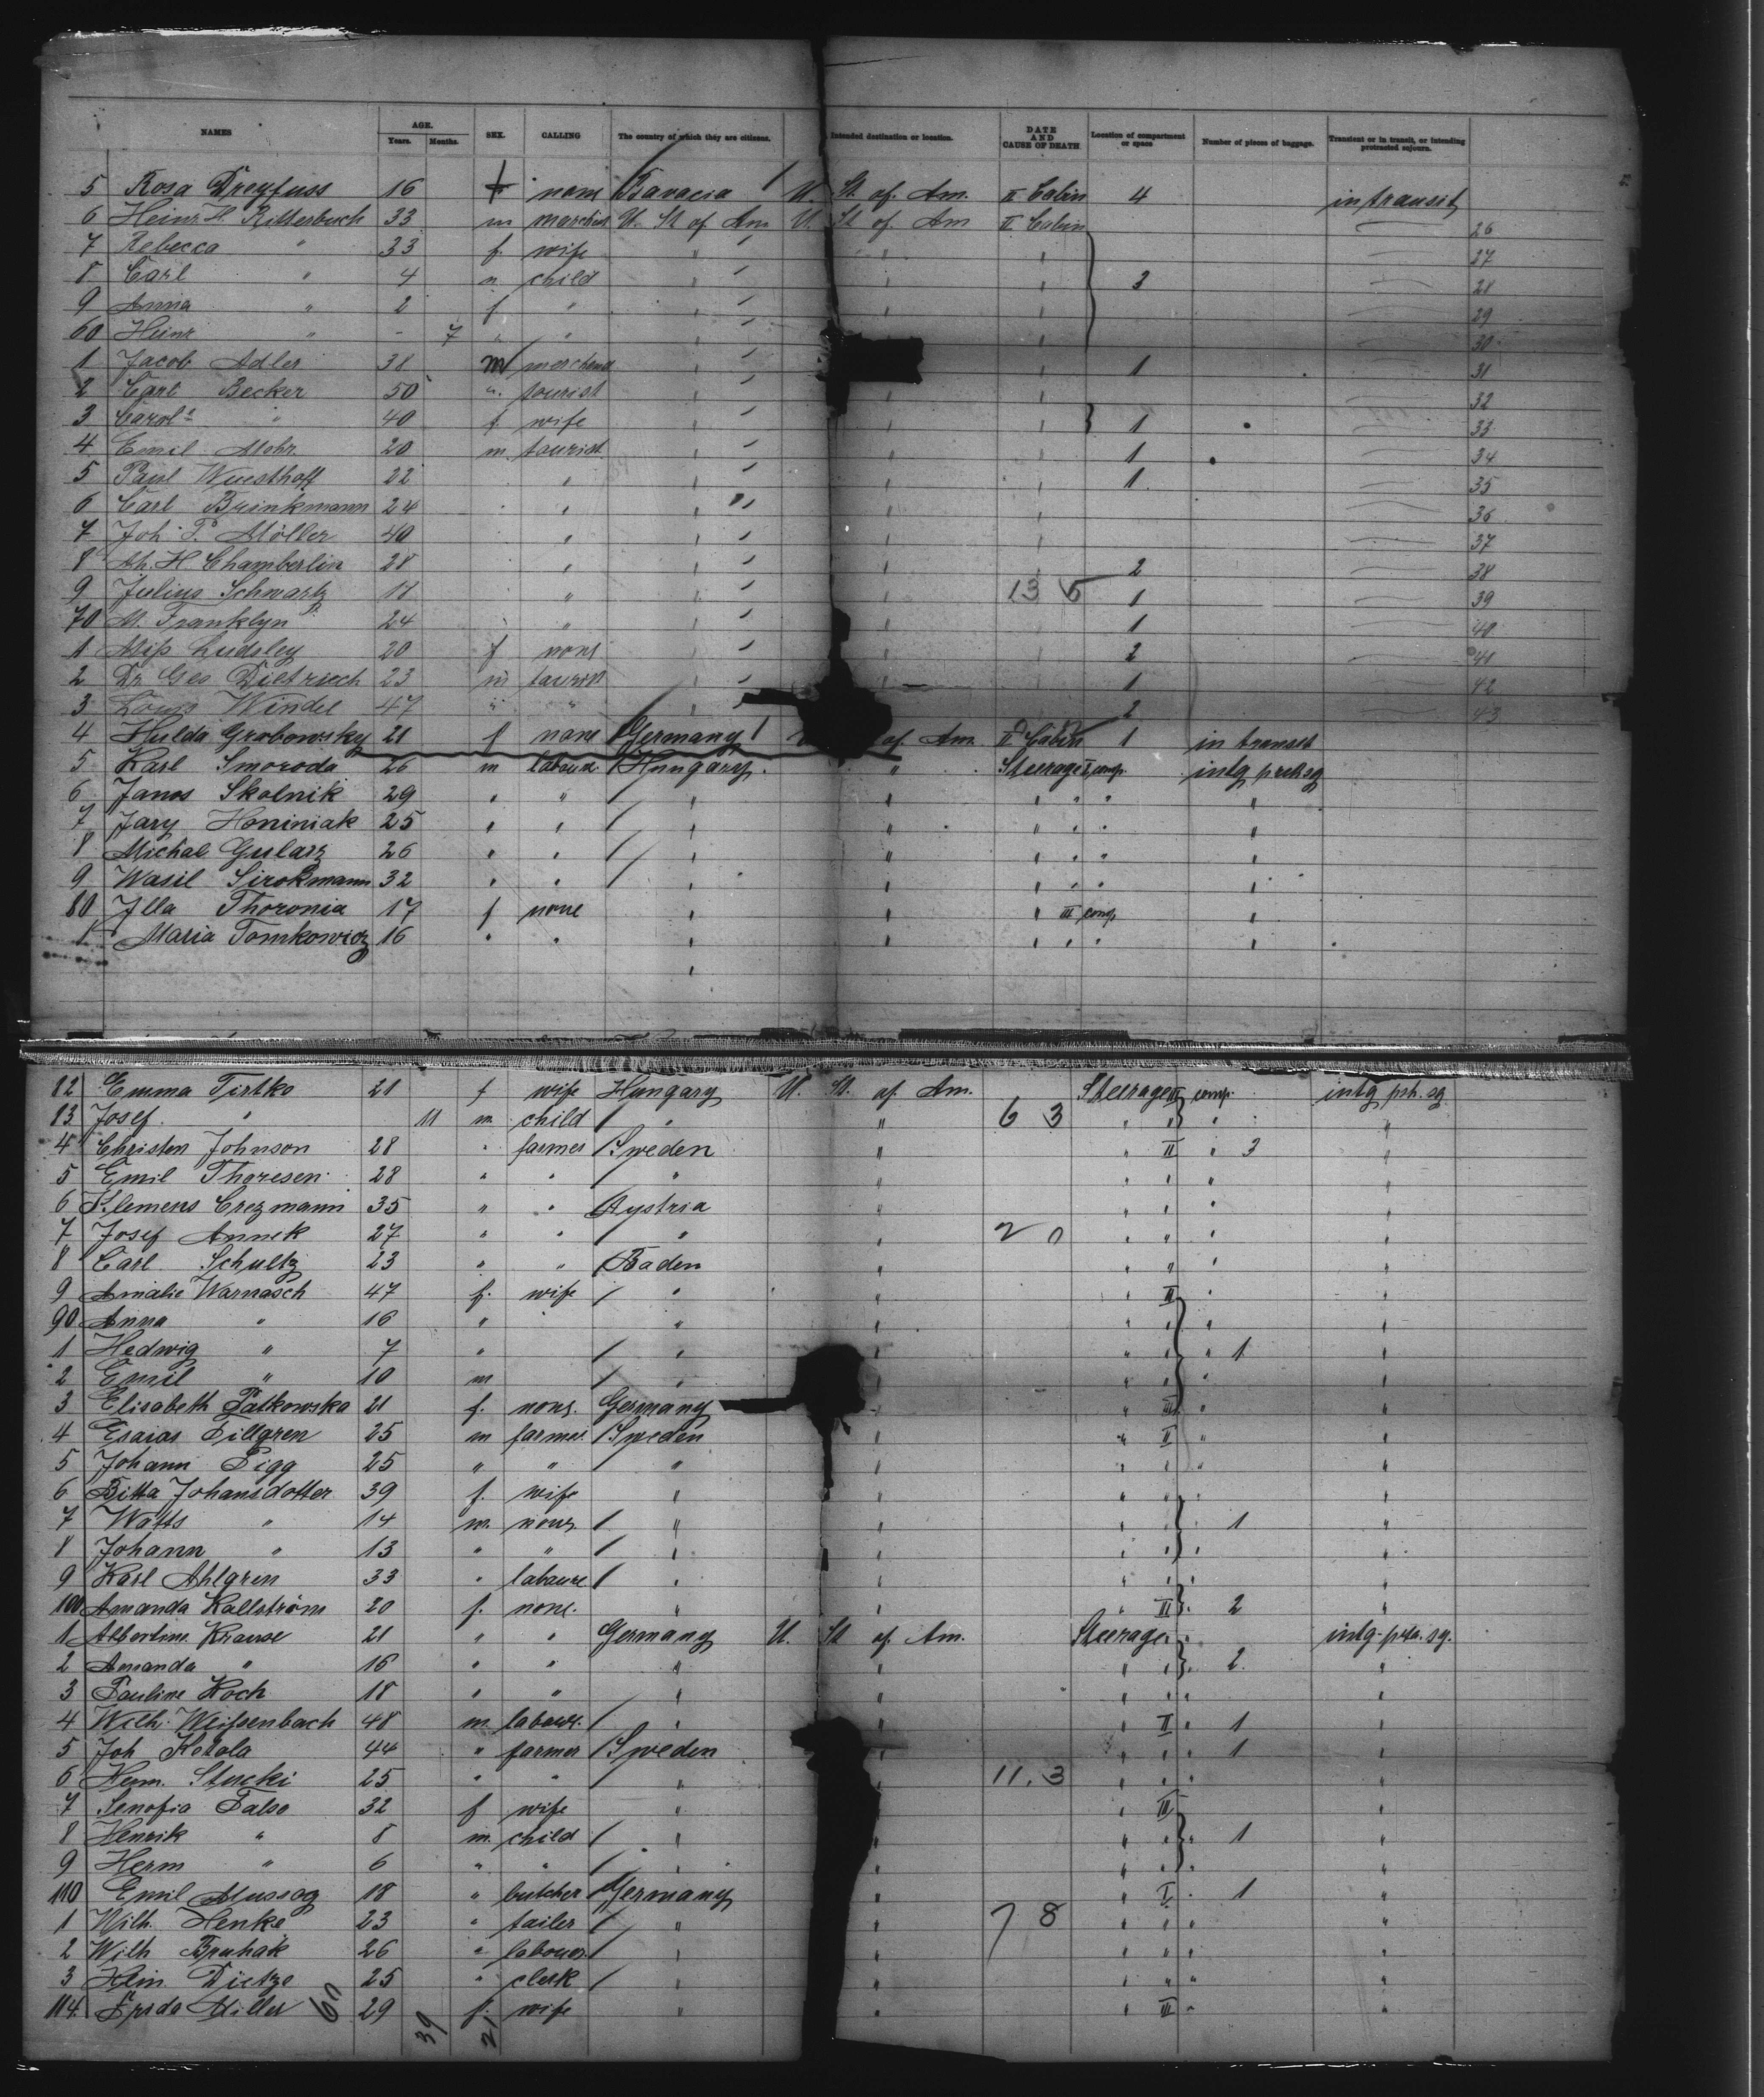 NAMES AGE. Years. Months. SEX. CALLING The country of which they are citizens. Intended destination or location. DATE AND CAUSE OF DEATH Location of compartment or space Number of pieces of baggage. Transient or in transit, or intending protracted sojourn.
5 Rosa Dreyfuss 16 f none Bavaria U. St. of Am. II Cabin 4 in transit
6 Heinr. H. Ritterbuch 33 m U. St of Am U. St of Am II Cabin 26
7 Rebecca " 33 f. wife " " " 27
8 Carl " 4 m child " " " 3 28
9 Anna " 2 f " " " " 29
60 Heinr " - 7 " " " " " 30
1 Jacob Adler 38 m merchand " " " 1 31
2 Carl Becker 50 " tourist " " " 32
3 Carol. " 40 f. wife " " " 1 33
4 Emil Mohr. 20 m. tourist " " " 1 34
5 Paul Wuesthoff 22 " " " " 1 35
6 Carl Brinkmann 24 " " " " 36
7 Joh. P. Möller 40 " " " " 37
8 H. Chamberlin 28 " " " " 2 38
9 Julius Schwartz 18 " " " 13 5 1 39
70 M. Franklyn 24 " " " " 1 40
1 Miss Ludsley 20 f none " " " 2 41
2 Dr Geo Dietriech 23 m tourist " " " 1 42
3 Louis Windel 47 " " " " " 2 43
4 Hulda Grabowsky 21 f none Germany of Am. II Cabin 1 in transit
5 Karl Smoroda 26 m labour. Hungary. " Steerage I comp. intg prtr sg
6 Janos Skolnik 29 " " " " " " " "
7 Jary Honiniak 25 " " " " " " " "
8 Michal Gularz 26 " " " " " " " "
9 Wasil Sirokmann 32 " " " " " " " "
80 Jlla Thoronia 17 f none " " " III comp "
1 Maria Tomkowicz 16 " " " " " " " "
82 Emma Tirtko 21 f wife Hungary U. St. of Am. Steerage III comp. intg prtr. sg
83 Josef " 11 m. child " " 6 3 " " " "
4 Christen Johnson 28 " farmer Sweden " " II " 3 "
5 Emil Thoresen 28 " " " " " " " "
6 Klemens Crezmann 35 " " Aystria " " " " "
7 Josef Annek 27 " " " " 2 0 " " " "
8 Carl Schultz 23 " " Baden " " " " "
9 Amalie Warnasch 47 f. wife " " " III " "
90 Anna " 16 " " " " " " " "
1 Hedwig " 7 " " " " " " 1 "
2 Emil " 10 m " " " " " "
3 Elisabeth Patkowska 21 f. none. Germany " " III " "
4 Esaias Tillgren 25 m farmer Sweden " " II " "
5 Johann Pigg 25 " " " " " " " "
6 Bitta Johansdotter 39 f. wife " " " " " "
7 Watts " 14 m. none. " " " " " 1 "
8 Johann " 13 " " " " " " " "
9 Karl Ahlgren 33 " laboure " " " " " "
100 Amanda Kallström 20 f. none. " " " III " 2 "
1 Albertine Krause 21 " " Germany U. St of Am. Steerage " " intg-prtr. sg.
2 Amanda " 16 " " " " " " " 2 "
3 Pauline Koch 18 " " " " " " " "
4 Wilh. Weissenbach 48 m. labour. " " " II " 1 "
5 Joh Ketola 44 " farmer Sweden " " " " 1 "
6 Herm. Stucki 25 " " " " 11. 3 " " " "
7 Senofia Palso 32 f wife " " " III "
8 Henrik " 8 m. child " " " " " 1 "
9 Herm " 6 " " " " " " " "
110 Emil Mussog 18 " butcher Germany " " I " 1 "
1 Wilh. Henke 23 " tailer " " 7 8 " " " "
2 Wilh Bruhak 26 " labour. " " " " " "
3 Hein. Dietze 25 " clerk " " " " " "
114. Miller 29 f. wife " " " III " "
60 39 21